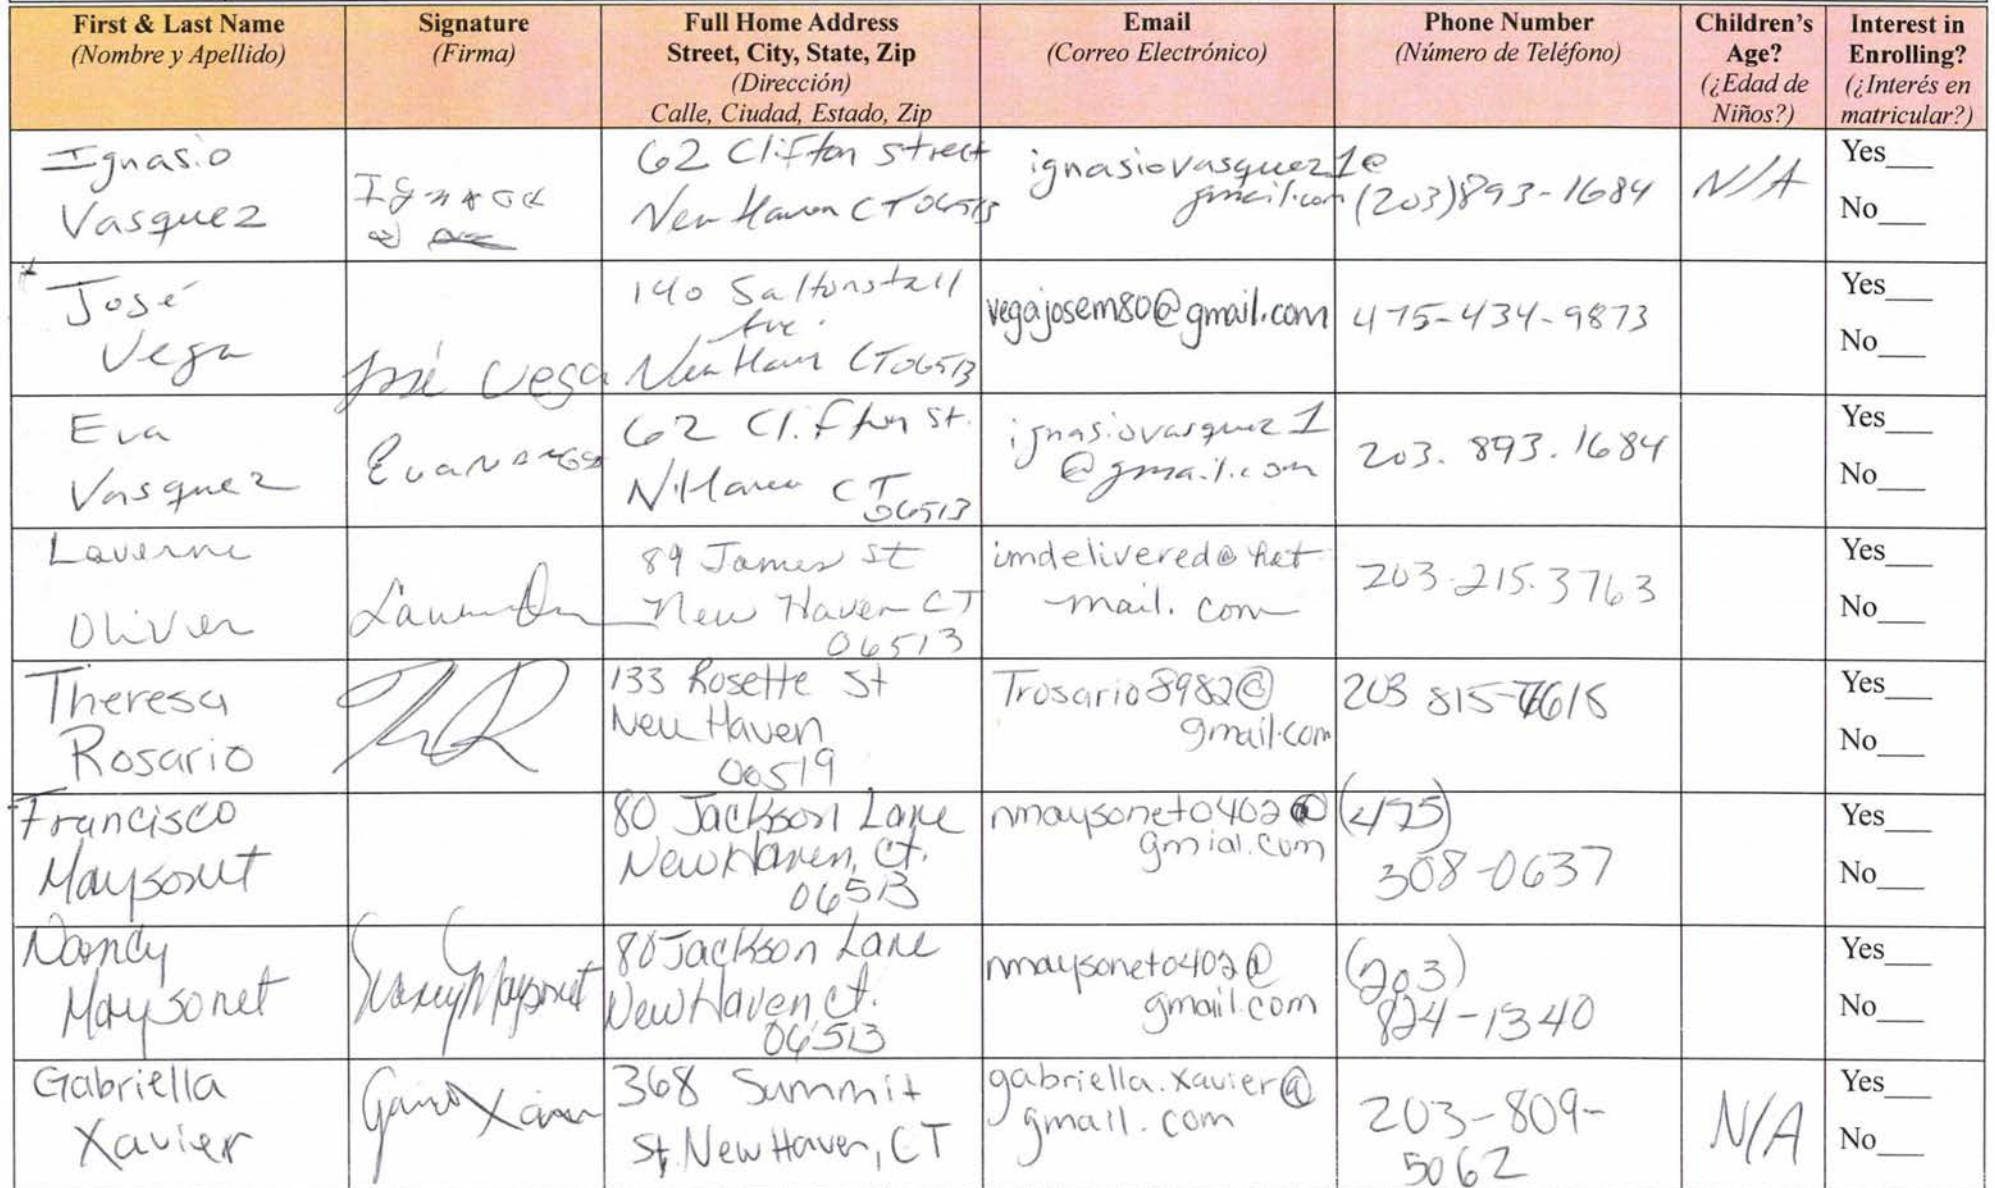 First & Last Name
(Nombre y Apellido)
Signature
(Firma)
Full Home Address
Street, City, State, Zip
(Dirección)
Calle, Ciudad, Estado, Zip
Email
(Correo Electrónico)
Phone Number
(Número de Teléfono)
Children's
Age?
(¿Edad de
Niños?)
Interest in
Enrolling?
(¿Interés en
matricular?)
Ignasio
Vasquez
62 Clifton street
New Haven CT 06513
ignasiovasquez1@
gmail.com
(203)893-1684
N/A
Yes___
No___
José
Vega
José Vega
140 Saltonstall
Ave.
New Haven CT 06513
vegajosem80@gmail.com
475-434-9873
Yes___
No___
Eva
Vasquez
Eva
62 Clifton St.
N. Haven CT
06513
ignasiovasquez1
@gmail.com
203. 893. 1684
Yes___
No___
Laverne
Oliver
89 James St
New Haven CT
06513
imdelivered@hot
mail. com
203.215.3763
Yes___
No___
Theresa
Rosario
TR
133 Rosette St
New Haven
06519
Trosario8982@
gmail.com
203 815-7615
Yes___
No___
Francisco
Maysonet
80 Jackson Lane
New Haven, Ct.
06513
nmaysonet0402@
gmial.com
(475)
308-0637
Yes___
No___
Nancy
Maysonet
Nancy Maysonet
80 Jackson Lane
New Haven Ct.
06513
nmaysonet0402@
gmail.com
(203)
824-1340
Yes___
No___
Gabriella
Xavier
368 Summit
St, New Haven, CT
gabriella.xavier@
gmail.com
203-809-
5062
N/A
Yes___
No___